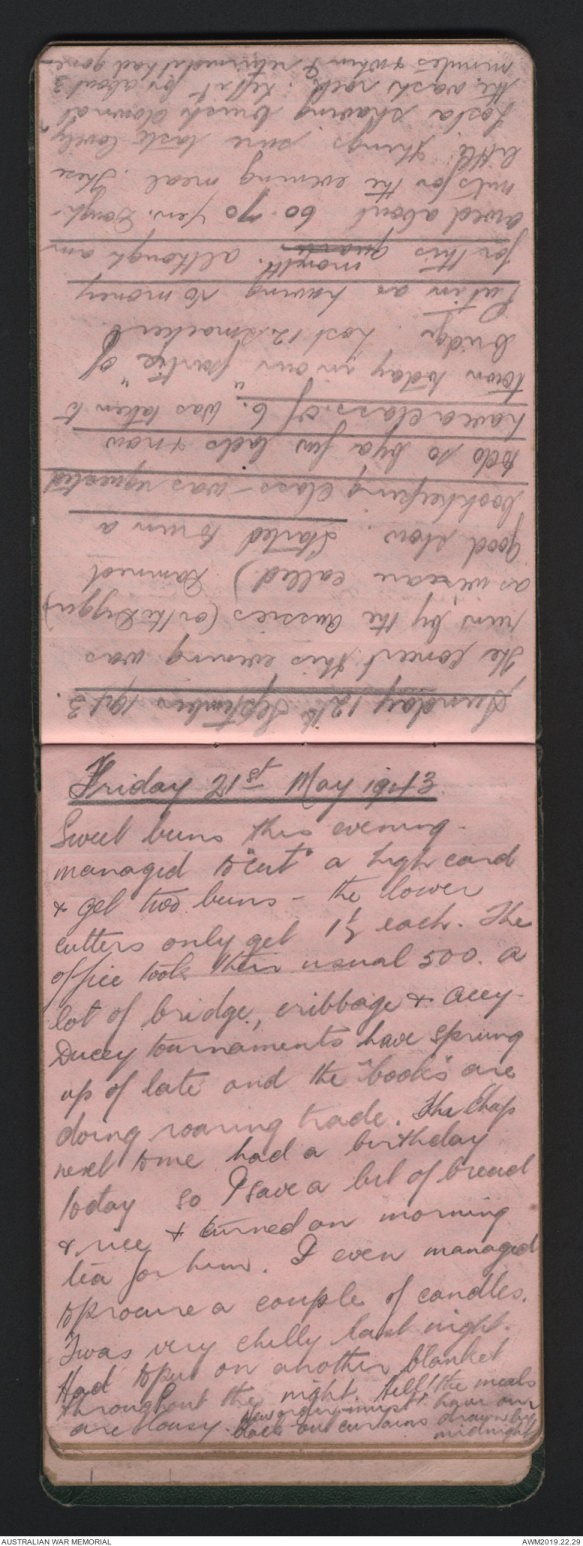 Sunday 12th September 1943.
The concert this evening was
run by the Aussies (or the Diggers)
as we are called) Damned
good show. Started to run a
bookkeeping class - was requested
to do so by a few lads & now
have a class of 6. Was taken to
town today in our "partie" of
bridge lost 12 smackers.
Put in as having no money
for this month. although am
owed about 60-70 Yen. Dough-
nuts for the evening meal. These
little things sure taste lovely.
Lost a shaving brush down at
the wash rack; left it for about 3
minutes & when I returned it had gone -
Friday 21st May 1943
Sweet buns this evening -
managed to "cut" a high card
& get two buns - the lower
cutters only get 1½ each. The
office took their usual 500. A
lot of bridge, cribbage & Acey-
Ducey tournaments have sprung
up of late and the "books" are
doing roaring trade. The chap
next to me had a birthday
today so I save a bit of bread
& rice & turned on morning
tea for him. I even managed
to procure a couple of candles.
Twas very chilly last night.
Had to put on another blanket
throughout the night. Hell! the meals
are lousy. New order - must have our
black out curtains drawn by
midnight
AUSTRALIAN WAR MEMORIAL
AWM2019.22.29